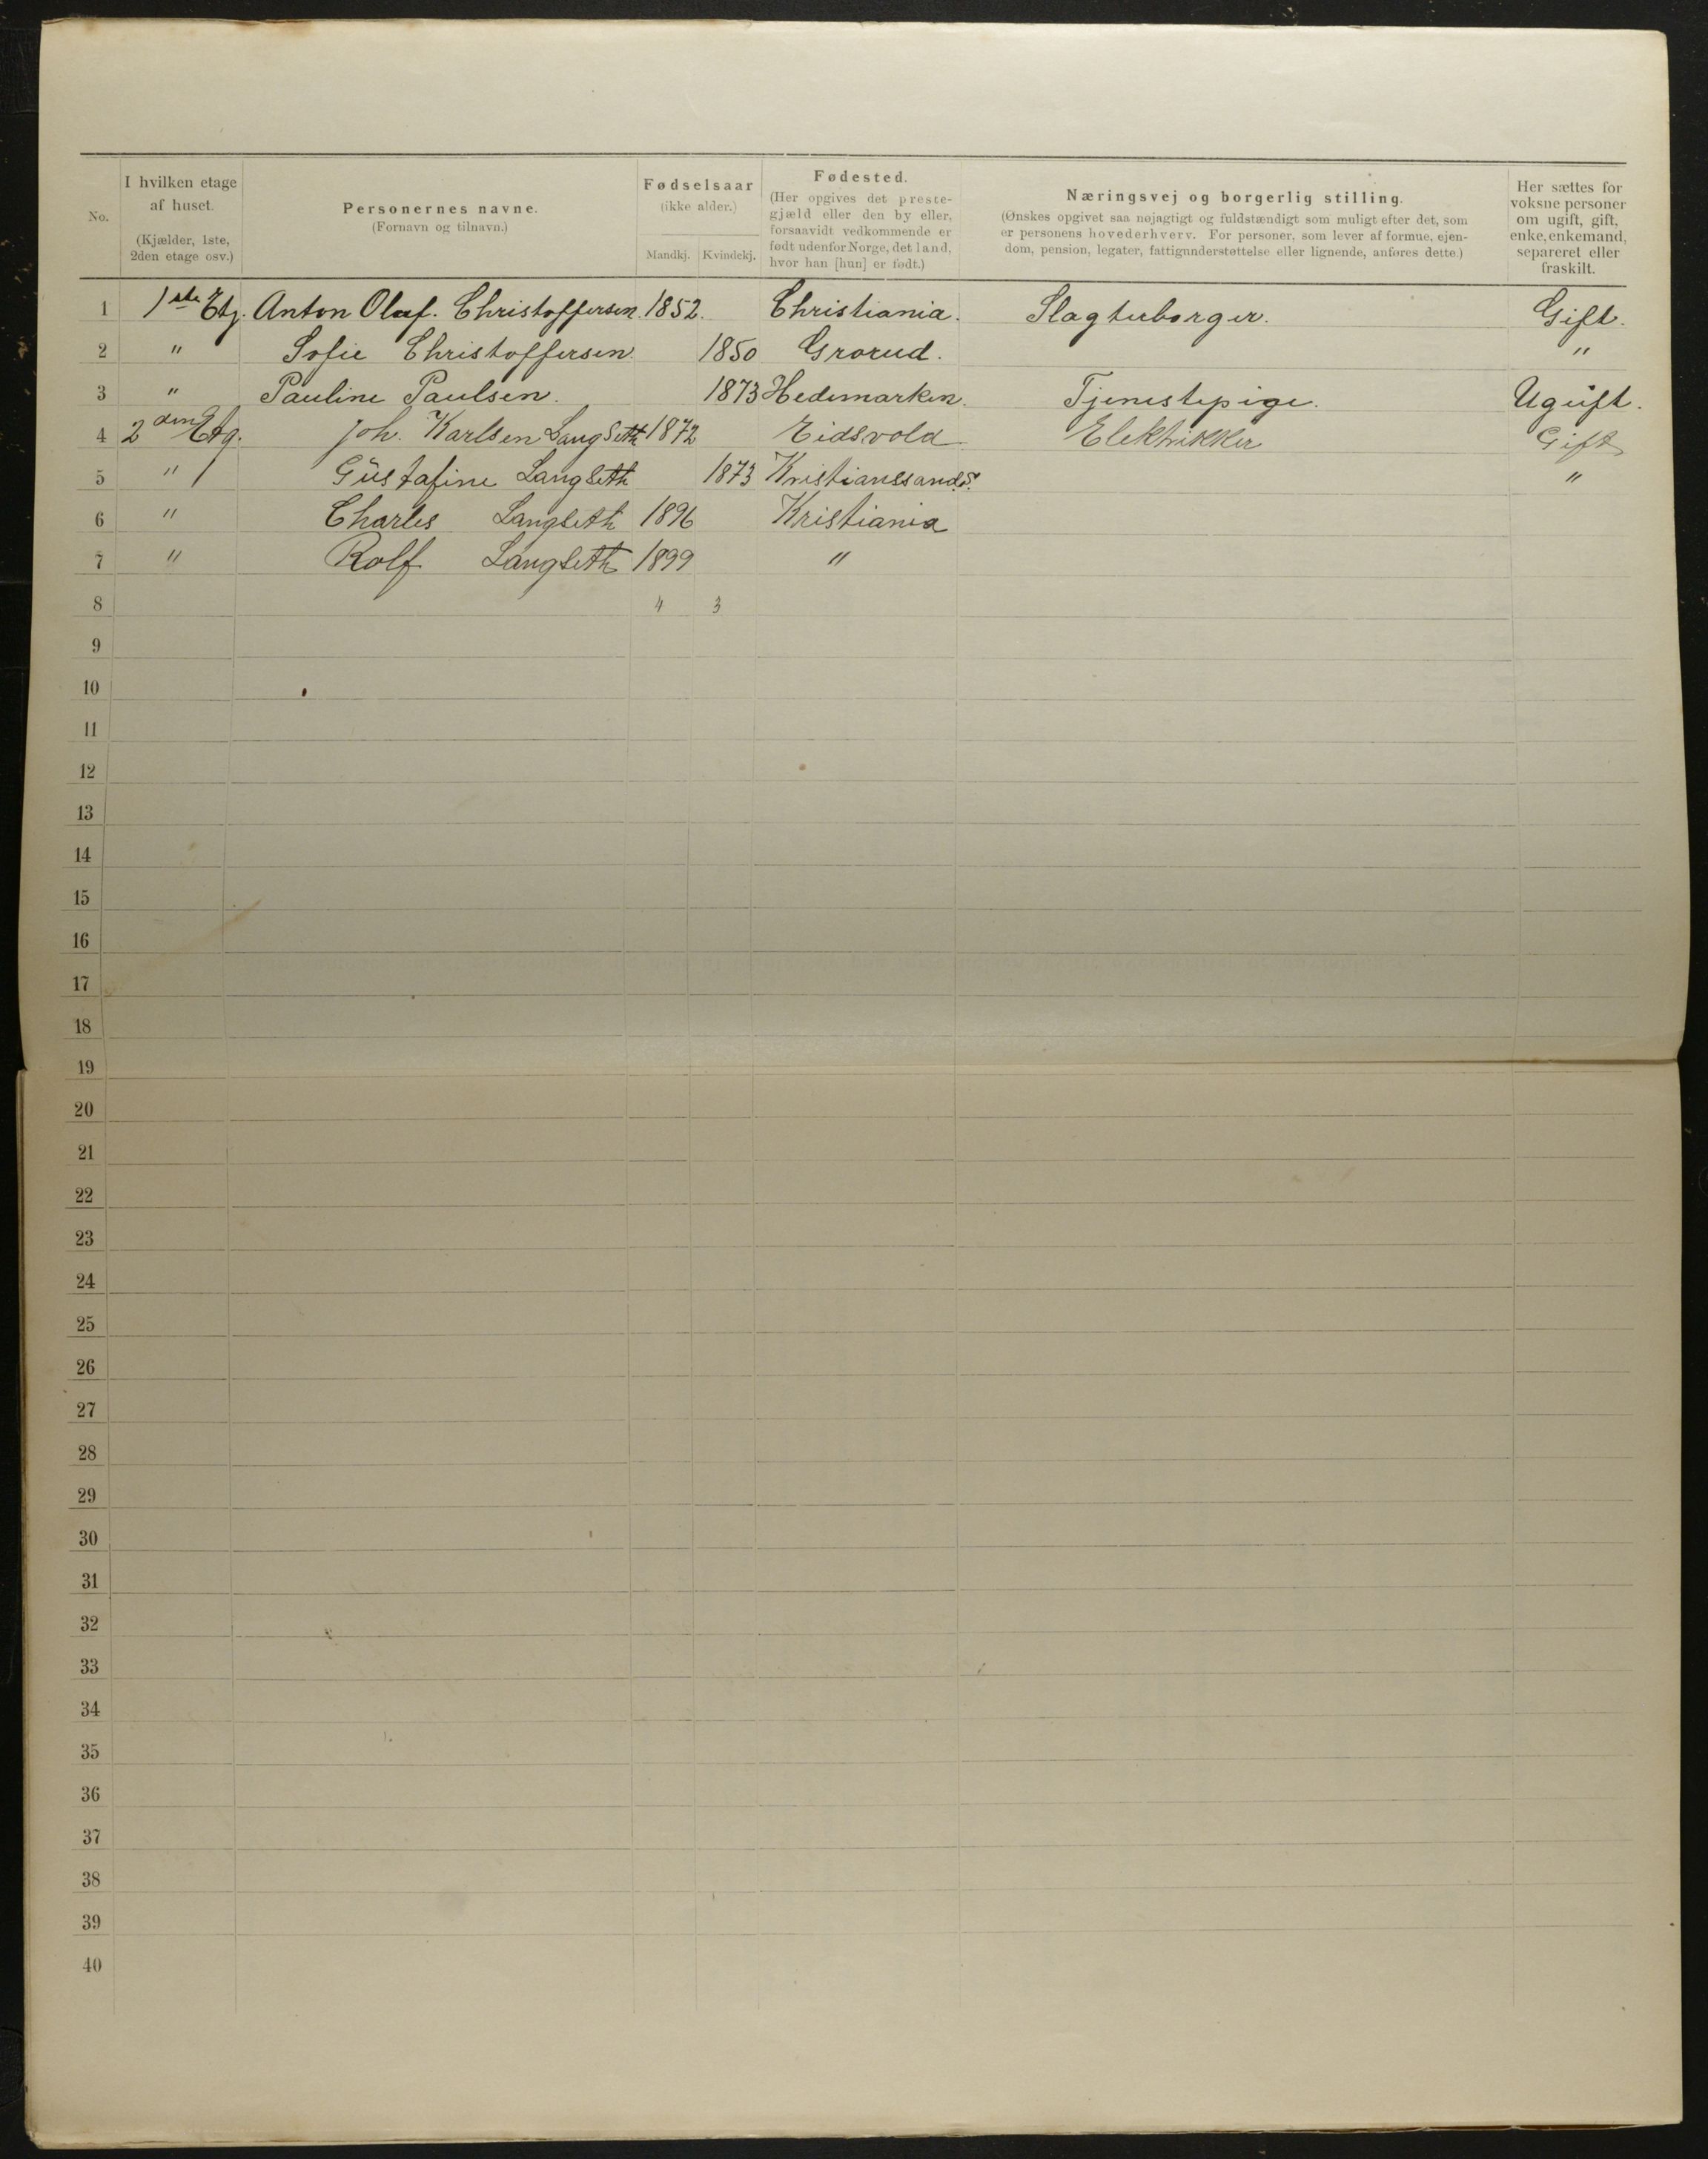 No.
I hvilken etage af huset.
(Kjælder, 1ste, 2den etage osv.)
Personernes navne.
(Fornavn og tilnavn.)
Fødselsaar
(ikke alder.)
Mandkj. Kvindekj.
Fødested.
(Her opgives det prestegjæld eller den by eller, forsaavidt vedkommende er født udenfor Norge, det land, hvor han [hun] er født.)
Næringsvej og borgerlig stilling.
(Ønskes opgivet saa nøjagtigt og fuldstændigt som muligt efter det, som er personens hovederhverv. For personer, som lever af formue, ejendom, pension, legater, fattignnderstøttelse eller lignende, anføres dette.)
Her sættes for voksne personer om ugift, gift, enke, enkemand, separeret eller fraskilt.
1 1ste Etg. Anton Oluf. Christoffersen. 1852. Christiania. Slagterborger. Gift.
2 " Sofie Christoffersen 1850 Grorud. "
3 " Pauline Paulsen. 1873 Hedemarken. Tjenestepige. Ugift.
4 2den Etg. Joh. Karlsen Langseth 1872 Eidsvold Elektrikker Gift
5 " Gustafine Langseth 1873 Kristianssand S. "
6 " Charles Langseth 1896 Kristiania
7 " Rolf Langseth 1899 "
8 4 3
9
10
11
12
13
14
15
16
17
18
19
20
21
22
23
24
25
26
27
28
29
30
31
32
33
34
35
36
37
38
39
40